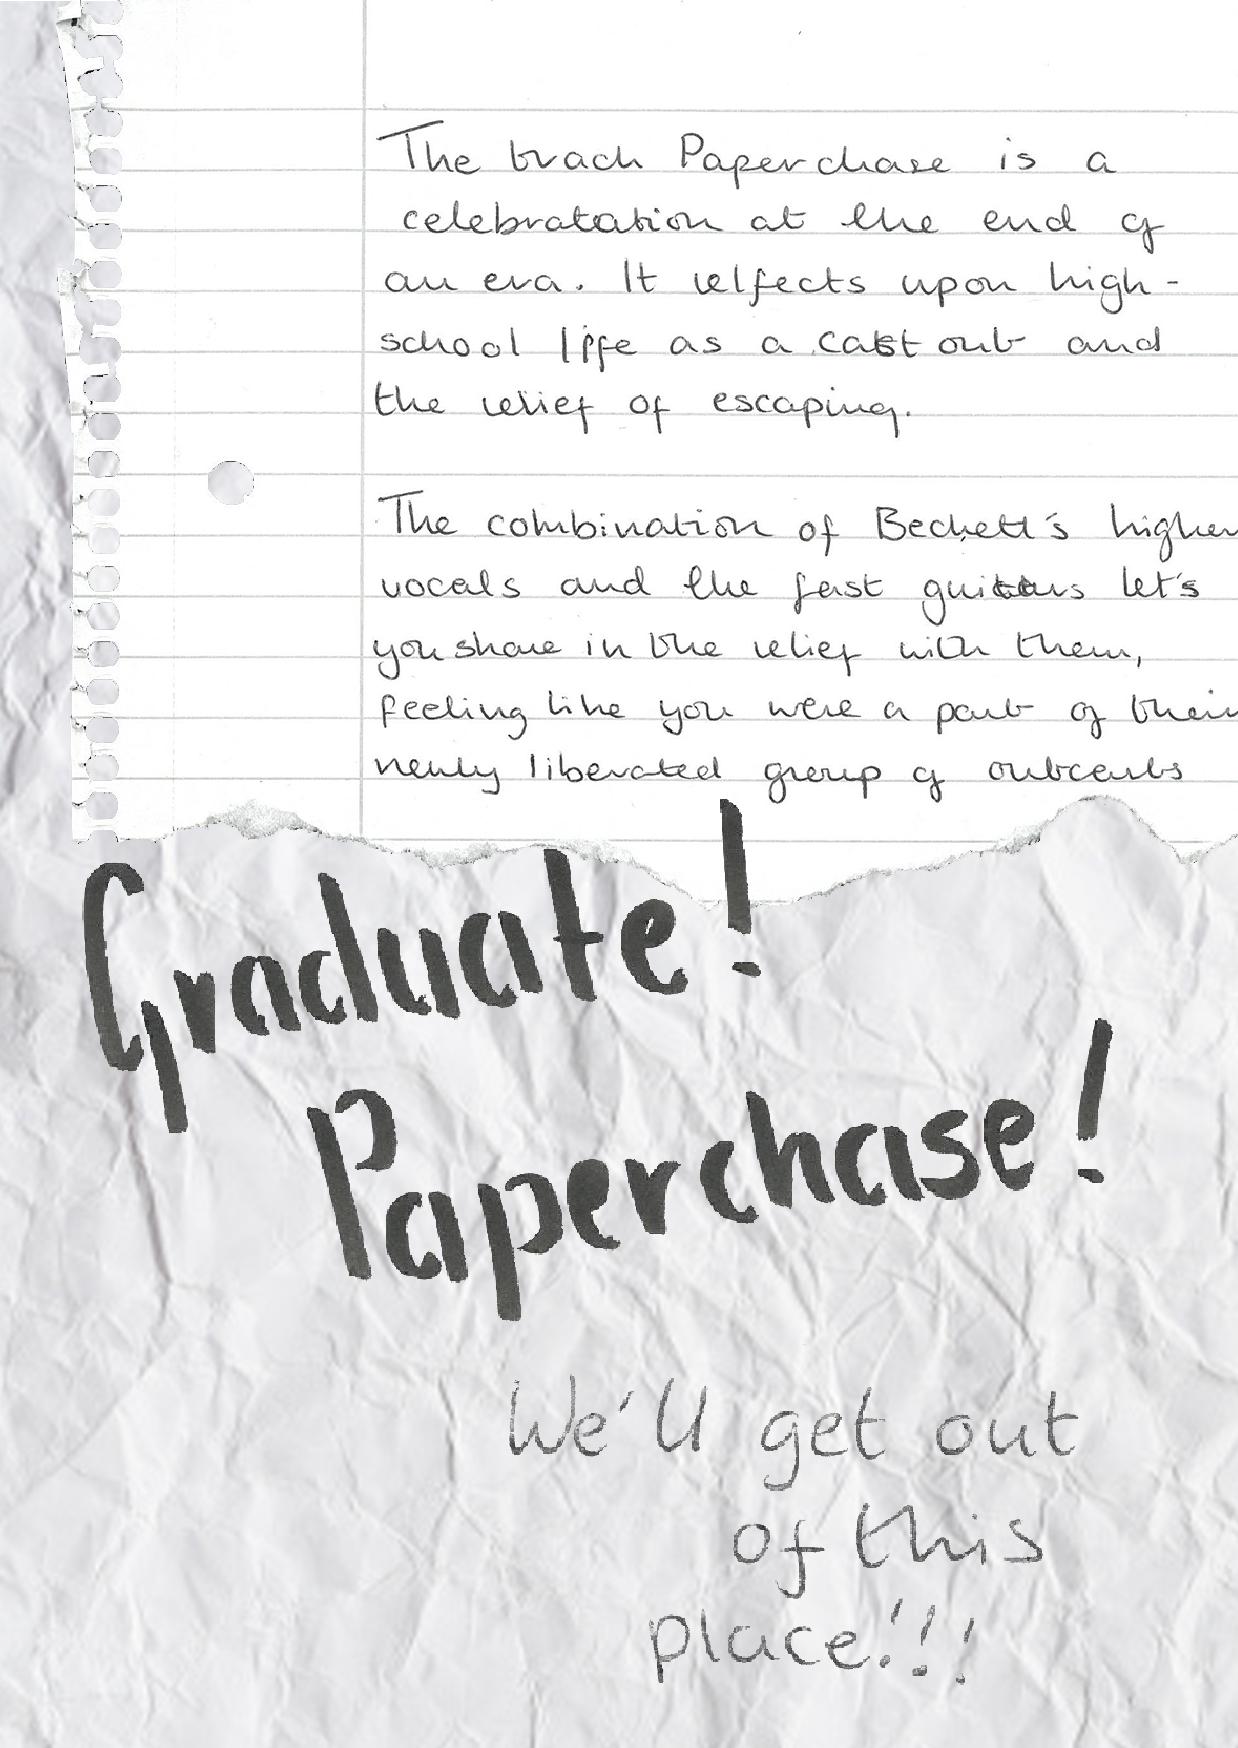 The track Paperchase is a
celebratation at the end of
an era. It relfects upon high-
school life as a cast out and
the relief of escaping.
The combination of Beckett's higher
vocals and the fast guitars let's
you share in the relief with them,
feeling like you were a part of their
newly liberated group of outcasts
Graduate!
Paperchase!
We'll get out
of this
place!!!